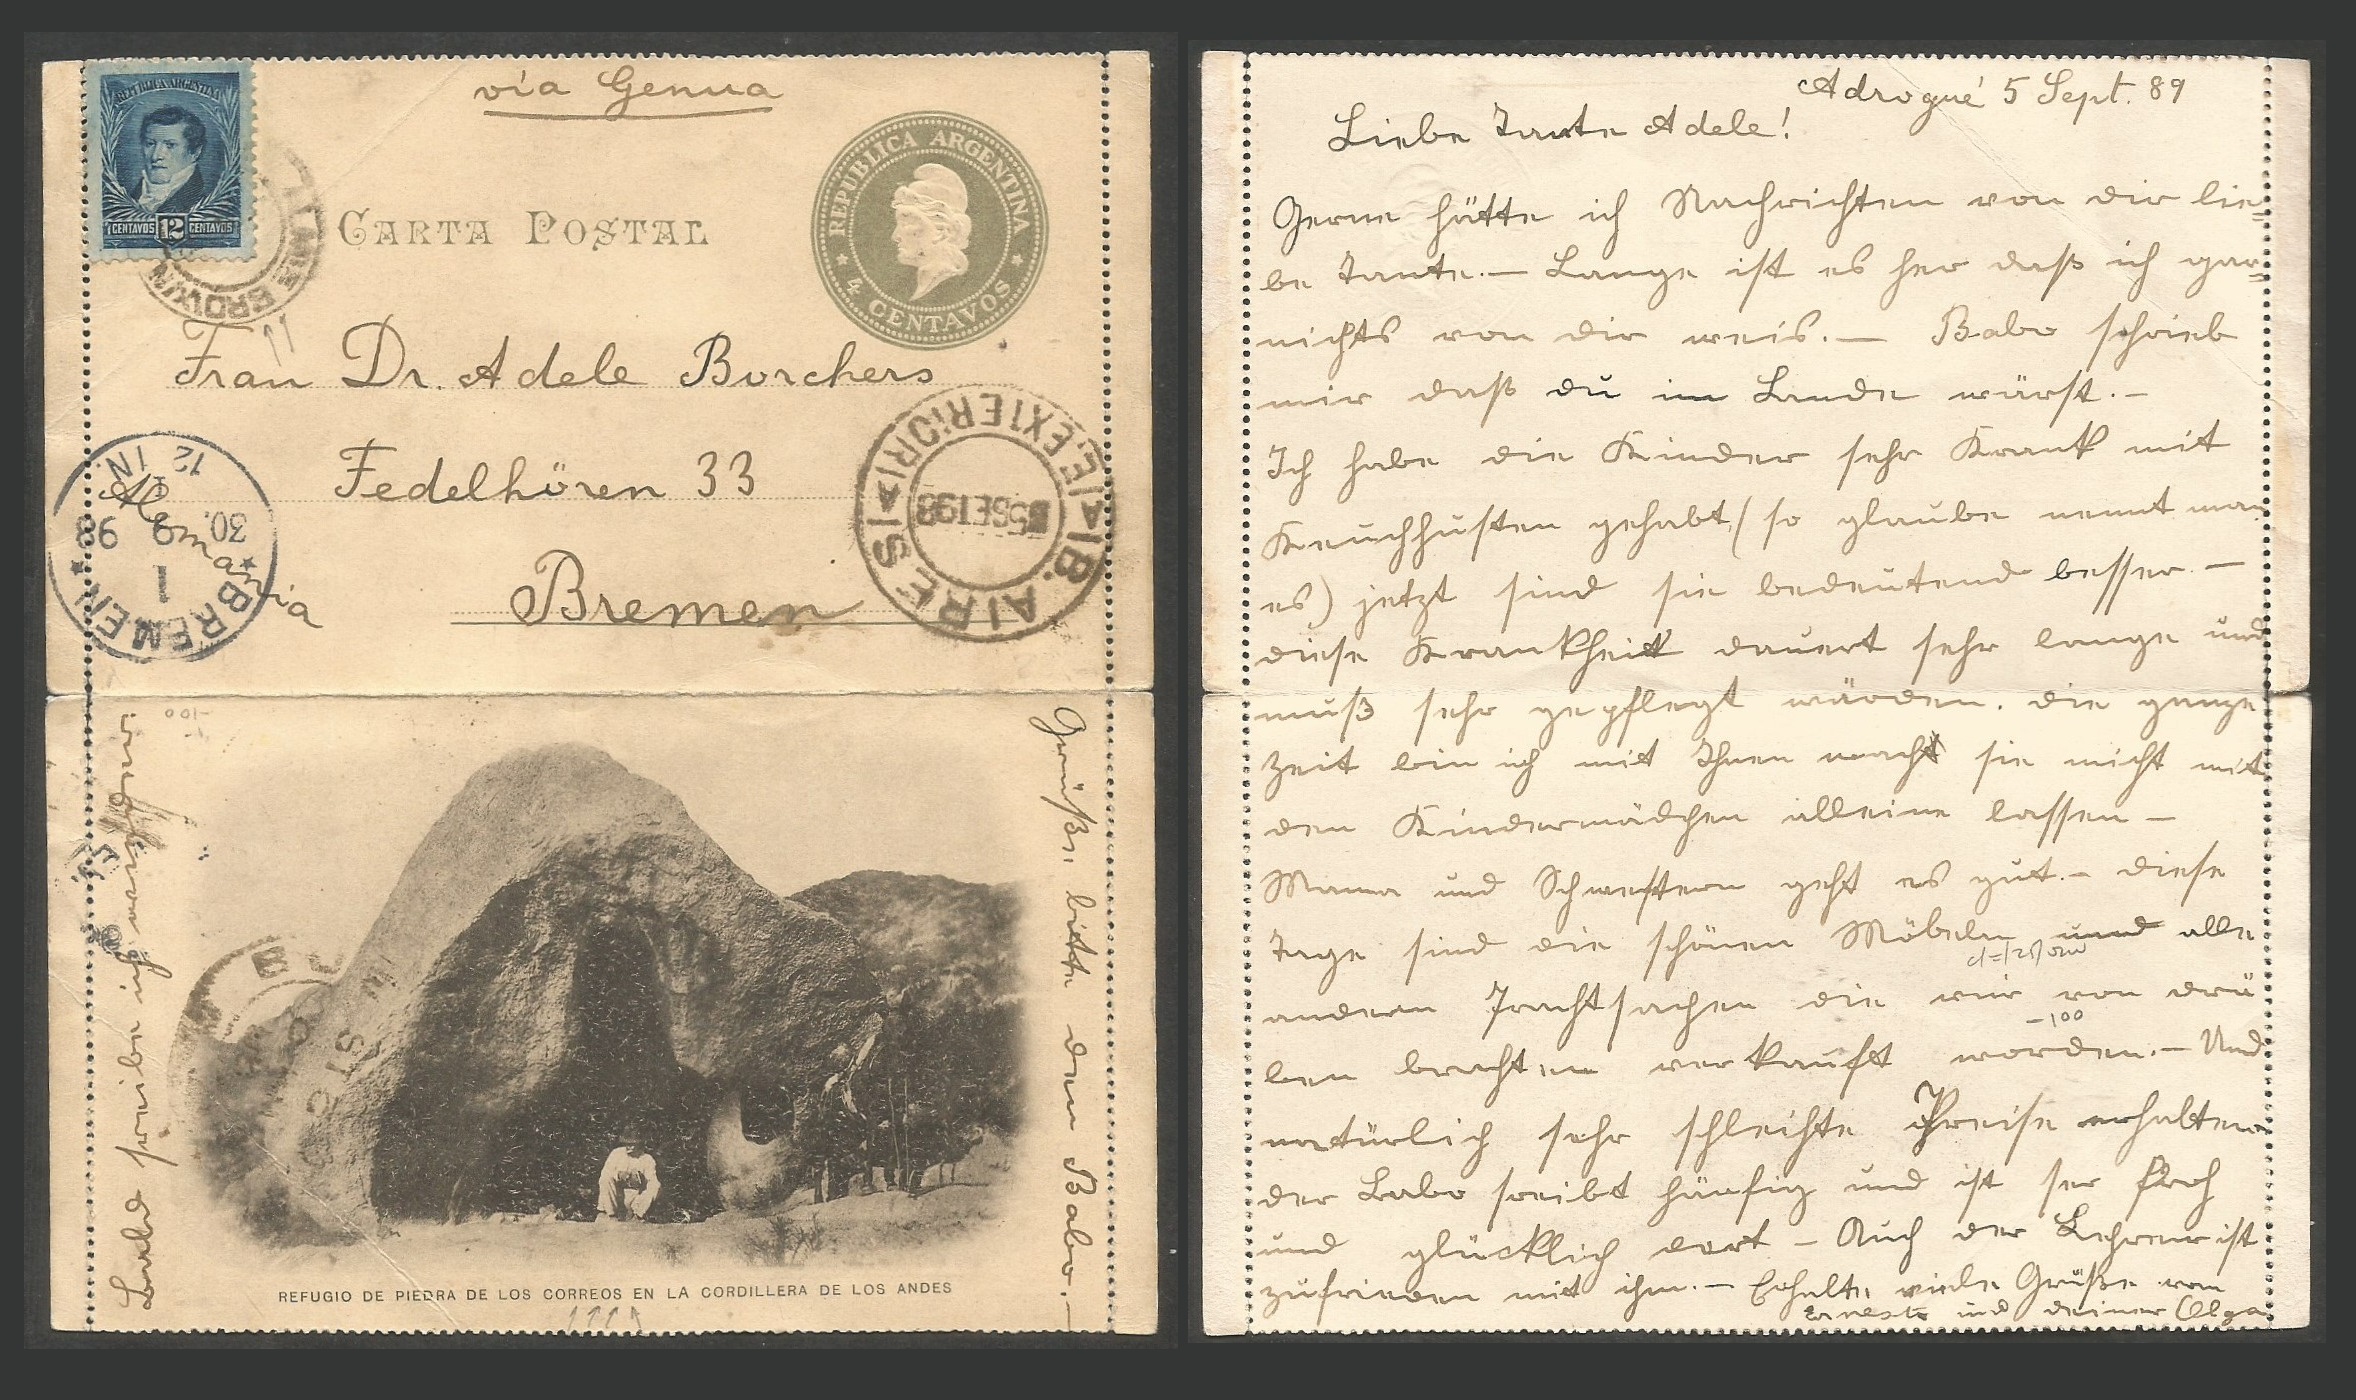 via Genua
REPUBLICA ARGENTINA
CENTAVOS 12 CENTAVOS
CARTA POSTAL
REPUBLICA ARGENTINA
4 CENTAVOS
BROWN
Frau Dr. Adele Borchers
Fedelhören 33
Bremen
Alemania
BREMEN
1
30. 9 98
12 1N.
BS AIRES
5 SET 98
EXTERIOR
Grüße bitte den Babo. —
Babo schreibe ich morgen.
BU
REFUGIO DE PIEDRA DE LOS CORREOS EN LA CORDILLERA DE LOS ANDES
Adrogué 5 Sept. 89
Liebe Tante Adele!
Gerne hätte ich Nachrichten von dir lie=
be Tante. — Lange ist es her daß ich gar=
nichts von dir weis. — Babo schrieb
mir daß du im Lande wärst. —
Ich habe die Kinder sehr Krank mit
Keuchhusten gehabt (so glaube nennt man
es) jetzt sind sie bedeutend besser —
diese Krankheit dauert sehr lange und
muß sehr gepflegt wärden. die ganze
Zeit bin ich mit Ihnen sie nicht mit
den Kindermädchen alleine lassen —
Mama und Schwestern geht es gut. — diese
Tage sind die schönen Möbeln und alle
andern Prachtsachen die wir von drü
-100
ben brachten verkauft worden. — Und
natürlich sehr schleichte Preise erhalten
der Babo sreibt häufig und ist ser froh
und glücklich dort — Auch der Lehrer ist
zufrieden mit ihm. — Erhalte viele Grüße von
Ernesto und deiner Olga